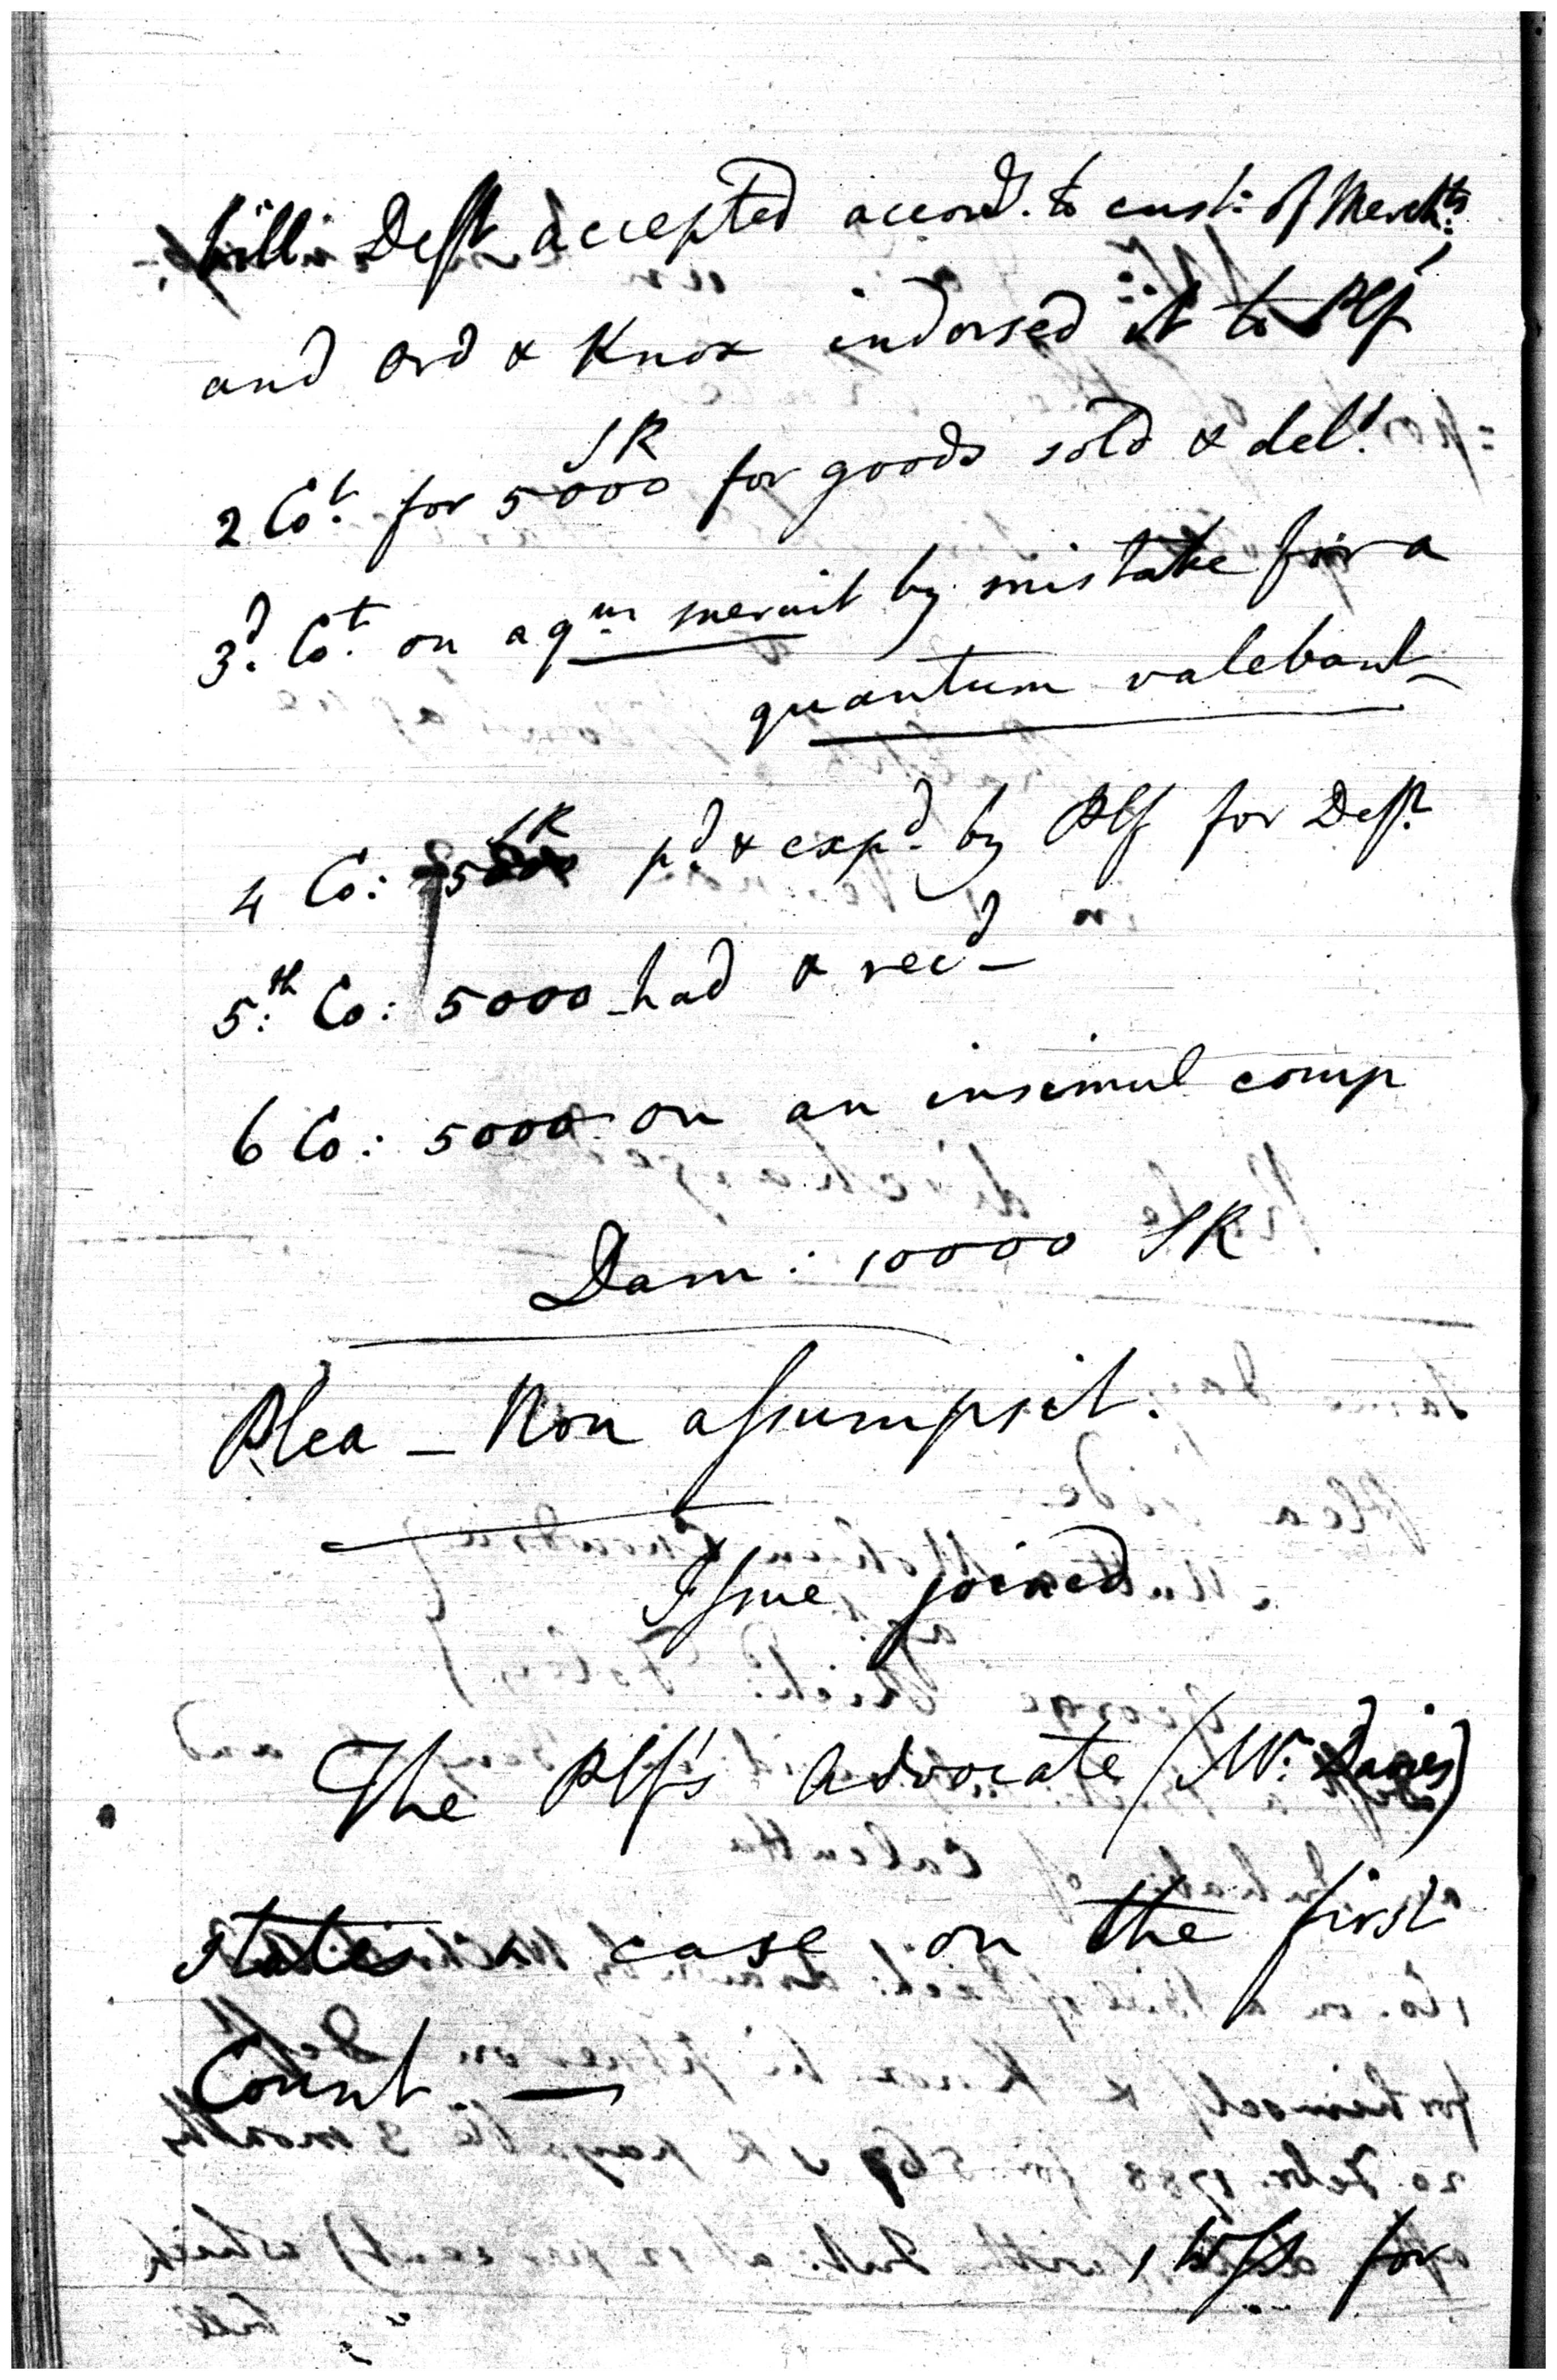 bill Deft accepted accord. to cust: of Merchts:
and Ord & Knox indorsed it to Plf
SR
2 Cot. for 5000 for goods sold & deld.
3d. Cot. on a qm meruit by mistake for a
quantum valebant
SR
4 Co: 5000 pd. & expd. by Plf for Deft
5:th Co: 5000 had & recd
6 Co: 5000 on an insimul comp
Dam: 10000 SR
Plea - Non assumpsit.
Issue joined
The Plf's Advocate (Mr. Davies)
states a case on the first
Count —
1 Wss for